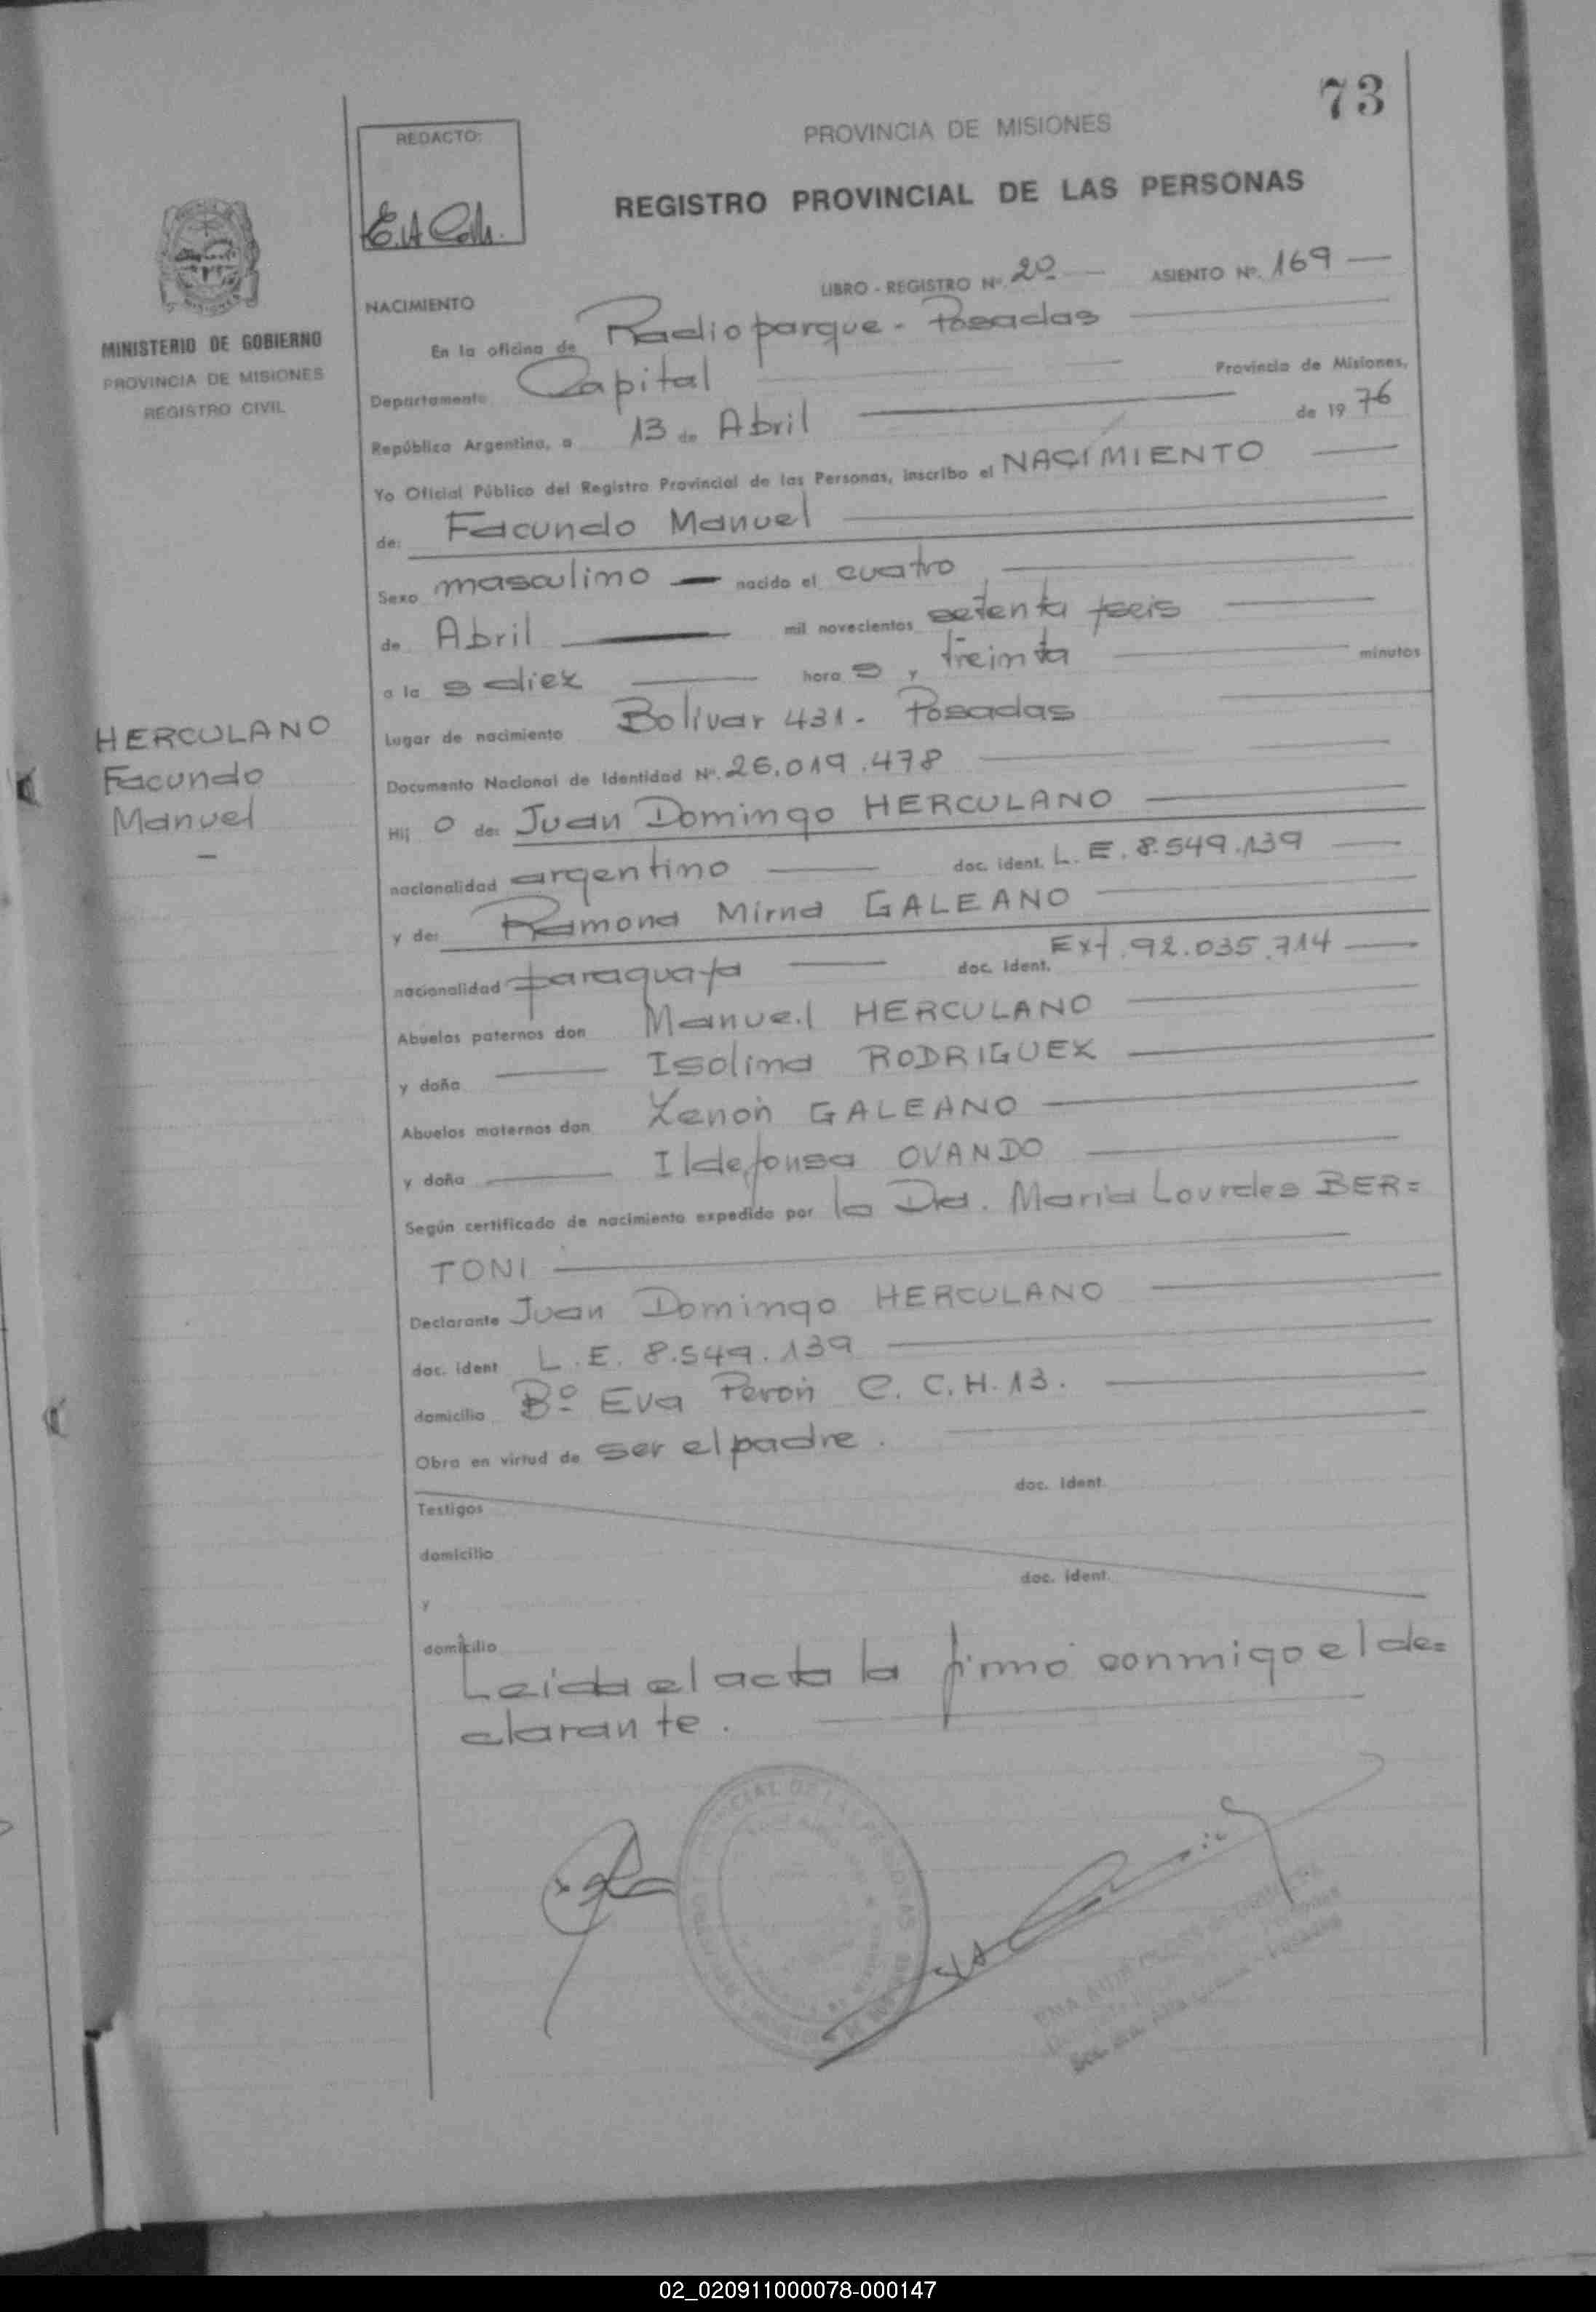 73
REDACTO:
PROVINCIA DE MISIONES
REGISTRO PROVINCIAL DE LAS PERSONAS
MINISTERIO DE GOBIERNO
PROVINCIA DE MISIONES
REGISTRO CIVIL
LIBRO - REGISTRO Nº. 2º ASIENTO Nº. 169
NACIMIENTO
En la oficina de Radioparque - Posadas
Departamento Capital Provincia de Misiones,
República Argentina, a 13 de Abril de 1976
Yo Oficial Público del Registro Provincial de las Personas, inscribo el NACIMIENTO
de: Facundo Manuel
Sexo masculino nacido el cuatro
de Abril mil novecientos setenta y seis
a la s diez hora s y treinta minutos
Lugar de nacimiento Bolivar 431 - Posadas
HERCULANO
Facundo
Manuel
Documento Nacional de Identidad Nº. 26.019.478
Hij o de: Juan Domingo HERCULANO
nacionalidad argentino doc. ident. L.E. 8.549.139
y de: Ramona Mirna GALEANO
nacionalidad paraguaya doc. ident. Ext. 92.035.714
Abuelos paternos don Manuel HERCULANO
y doña Isolina RODRIGUEZ
Abuelos maternos don Zenón GALEANO
y doña Ildefonsa OVANDO
Según certificado de nacimiento expedido por la Dra. María Lourdes BER=
TONI
Declarante Juan Domingo HERCULANO
doc. ident L.E. 8.549.139
domicilio Bº Eva Perón C. C.H. 13.
Obra en virtud de ser el padre.
doc. ident.
Testigos
domicilio
doc. ident.
y
domicilio
Leida el acta la firmó conmigo el de=
clarante.
02_020911000078-000147